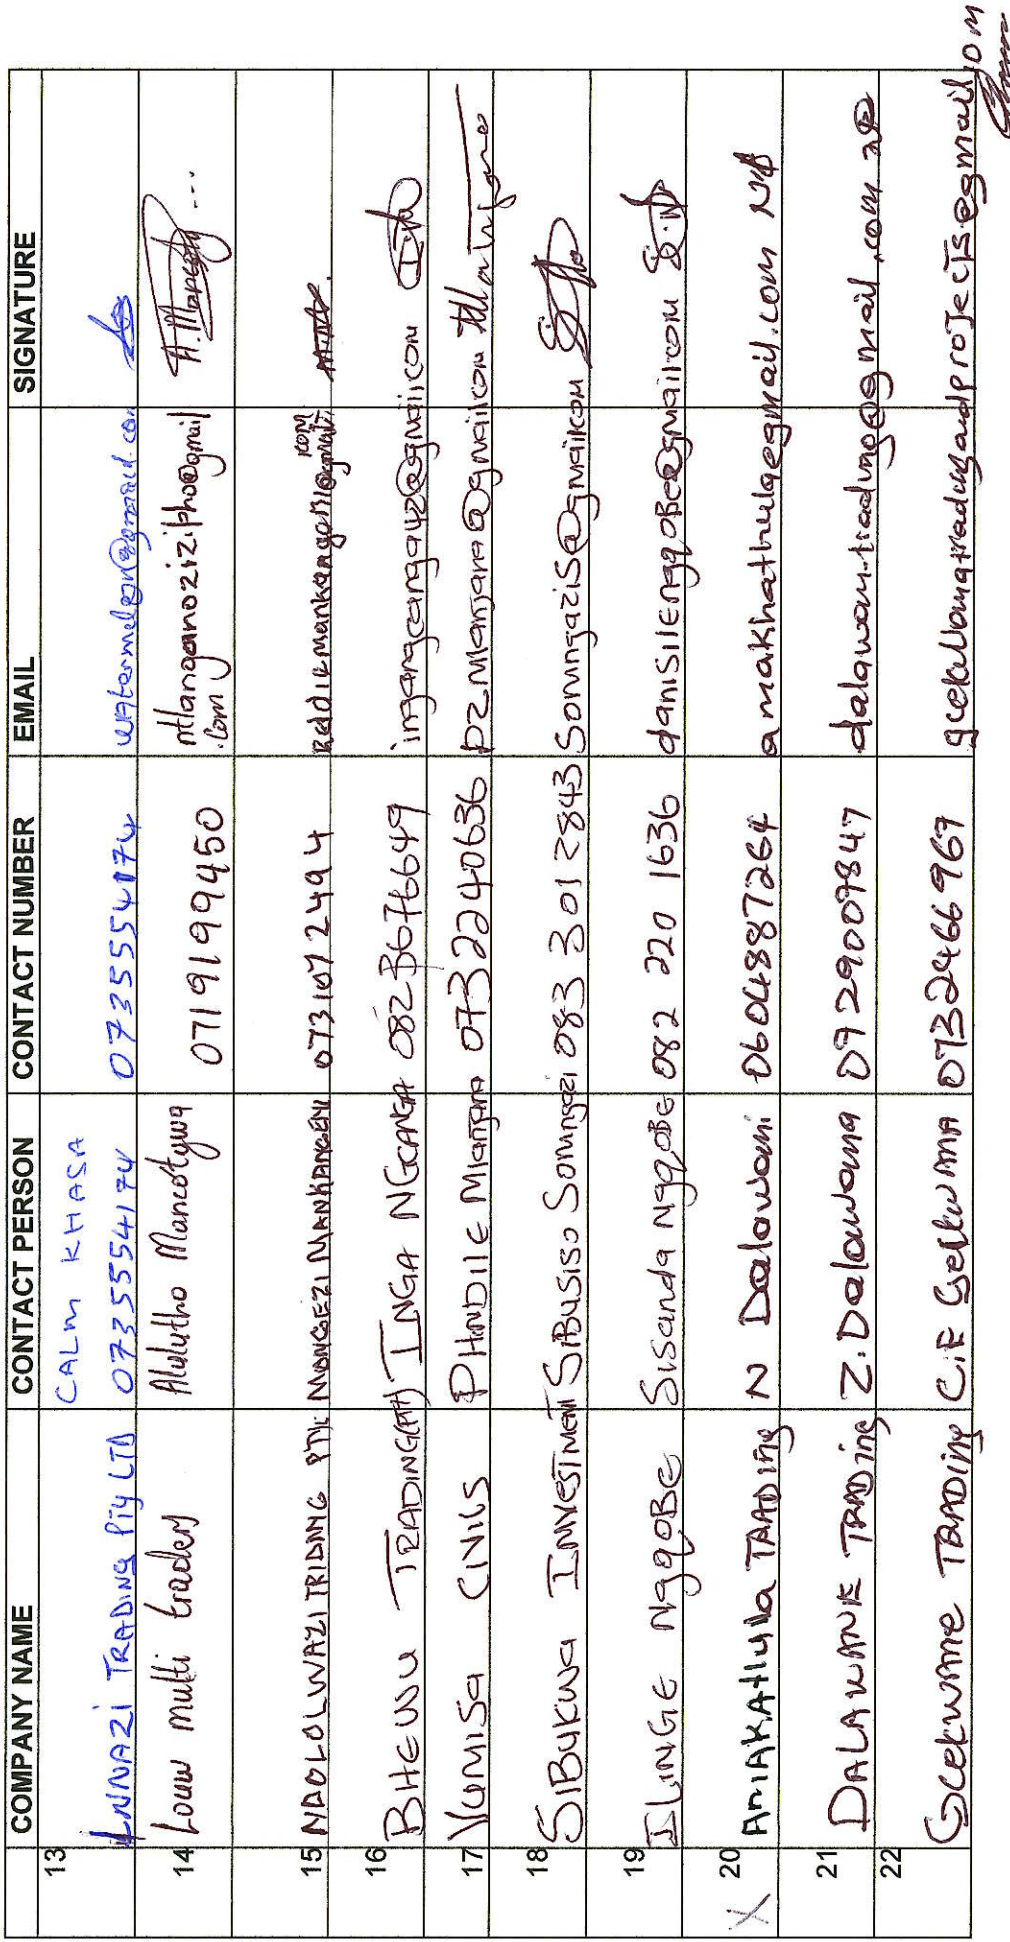 COMPANY NAME CONTACT PERSON CONTACT NUMBER EMAIL SIGNATURE
13 LNNAZI TRADING Pty LTD CALM KHASA 0735554174 0735554174 watermelgon@gmail.com
14 Louw multi traders Alulutho Mancotywa 0719199450 ntlanganozizipho@gmail
.com A.Mancoty...
15 NAOLOLWAZI TRIDING PTY MONGEZI MANKANGENI 0731072494
16 BHEUVU TRADING(PTY) INGA NGCANGA 0823676649 ingangcanga42@gmail.com
17 VUMISA CIVILS PHINDILE Mlanjana 0732240636 PZMlanjana@gmail.com
18 SIBUKWA INVESTMENT SIBUSISO Somngazi 083 301 2843 SomngaziS@gmail.com
19 ILINGE NGQOBE Sisanda NgqOBE 082 220 1636 danisilengqobe@gmail.com
X 20 AMAKAthula TRADING N Dalawani 0604887264 amakhathula@gmail.com
21 DALAWANE TRADING Z.Dalawana 0729007847 dalawani.trading@gmail.com
22 GCEKWANE TRADING C.F Gcekwana 0732466967 gcekwanatradingandprojects@gmail.com